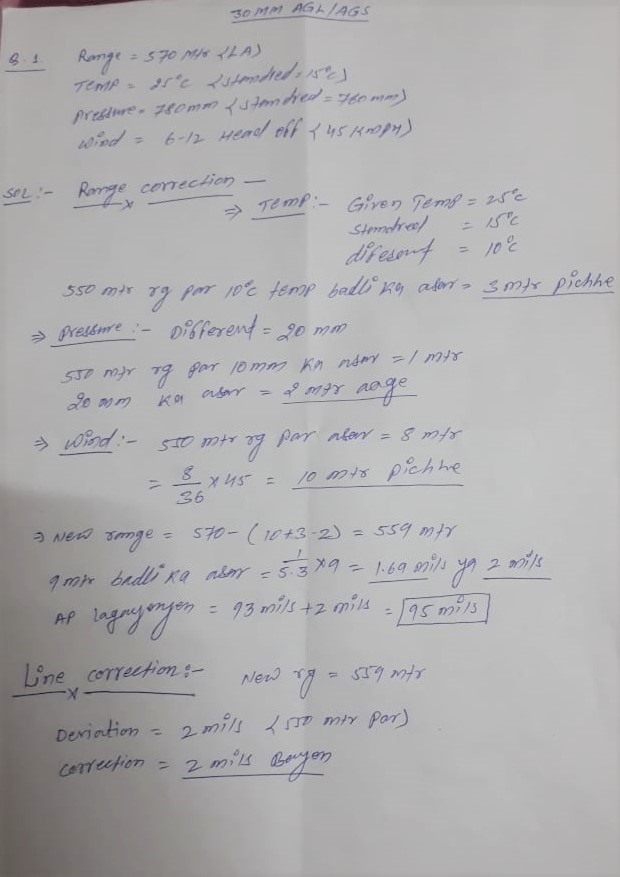 30MM AGL/AGS
Q.1. Range = 570 Mtr (LA)
Temp = 25°C (Stendred = 15°C)
Pressure = 780mm (Stendred = 760mm)
Wind = 6-12 Head off (45 KMPH)
SOL:- Range correction —
⇒ Temp:- Given Temp = 25°C
Stendred = 15°C
diferent = 10°C
550 mtr rg par 10°C temp badli ka asar = 3 mtr Pichhe
⇒ Pressure:- Different = 20 mm
550 mtr rg par 10mm Ka asar = 1 mtr
20 mm Ka asar = 2 mtr aage
⇒ Wind:- 550 mtr rg par asar = 8 mtr
= 8/36 × 45 = 10 mtr Pichhe
⇒ New range = 570-(10+3-2) = 559 mtr
9 mtr badli ka asar = 1/5.3 × 9 = 1.69 mils ya 2 mils
AP lagayenyen = 93 mils + 2 mils = 95 mils
Line correction:- New rg = 559 mtr
Deviation = 2 mils (550 mtr Par)
correction = 2 mils Bayen